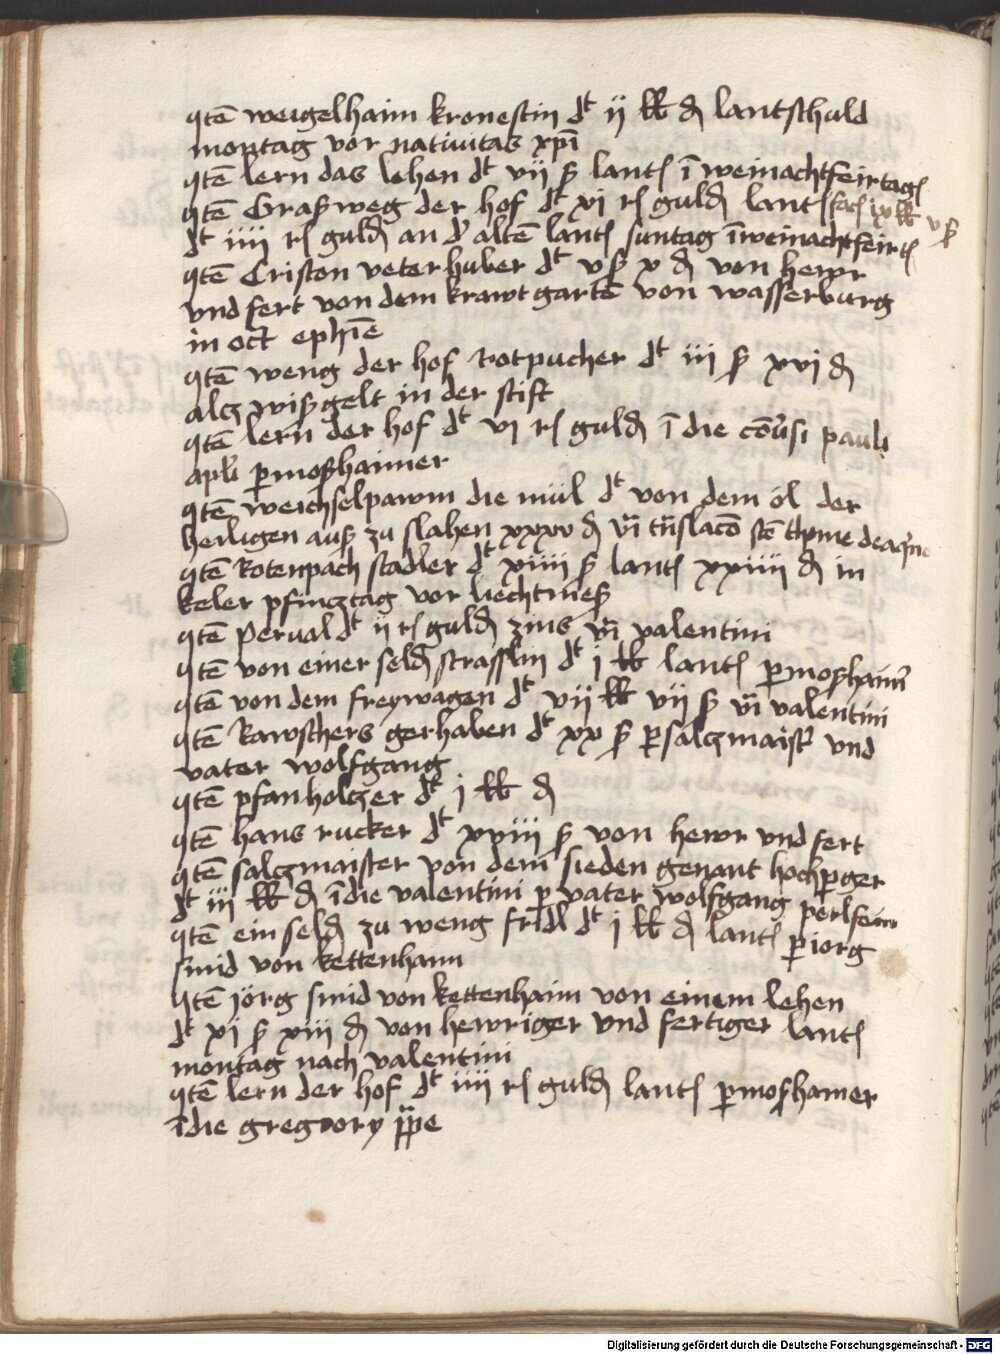 qtē weigelhaim kronestin dt ij ℔ ₰ lantschuld
montag vor nativitas xpī
qtē lern das lehen dt vij ß lantß ī weinachtfeirtagß
qtē Graßweg der hof dt xi rß guldß lantß facß ix ℔ v ß
dt iiij rß guldß an d' altē lantß suntag ī weinachtfeirtß
qtē Cristan veterhuber dt v ß x ₰ von hewr
vnd fert von dem krawtgartē von wasserburg
in oct ephīe
qtē weng der hof Rotpucher dt iij ß xvi ₰
alcz wißgelt in der stift
qtē lern der hof dt vi rß guldß ī die cōuersi pauli
apli p moßhaimer
qtē weichselpawm die mül dt von dem öl der
heiligen auß zu slahen xxxv ₰ vī tn̄slacō scē thome de aqne
qtē Rotenpach stadler dt xiiii ß lantß xxiiii ₰ in
keler pfincztag vor liechtmeß
qtē Perwal dt ij rß guldß zins vī valentini
qtē von einer seldß strasslin dt j ℔ lantß p moßhaim'
qtē von dem freywagen dt vij ℔ vij ß vī valentini
qtē Rawschers gerhaben dt xx ß p salczmaist' vnd
vater wolfgang
qtē pfanholczer dt j ℔ ₰
qtē hans rucker dt xxiij ß von hewr vnd fert
qtē salczmaister von dem sieden genant hochperger
dt iij ℔ ₰ ī die valentini p vater wolfgang perlsein
qtē ein seldß zu weng fridl dt j ℔ ₰ lantß p iorg
smid von kettenham
qtē jörg smid von kettenhaim von einem lehen
dt xj ß xiij ₰ von hewriger vnd fertiger lantß
montag nach valentini
qtē lern der hof dt iiij rß guldß lantß p moßhamer
ī die gregory ppe
Digitalisierung gefördert durch die Deutsche Forschungsgemeinschaft - DFG